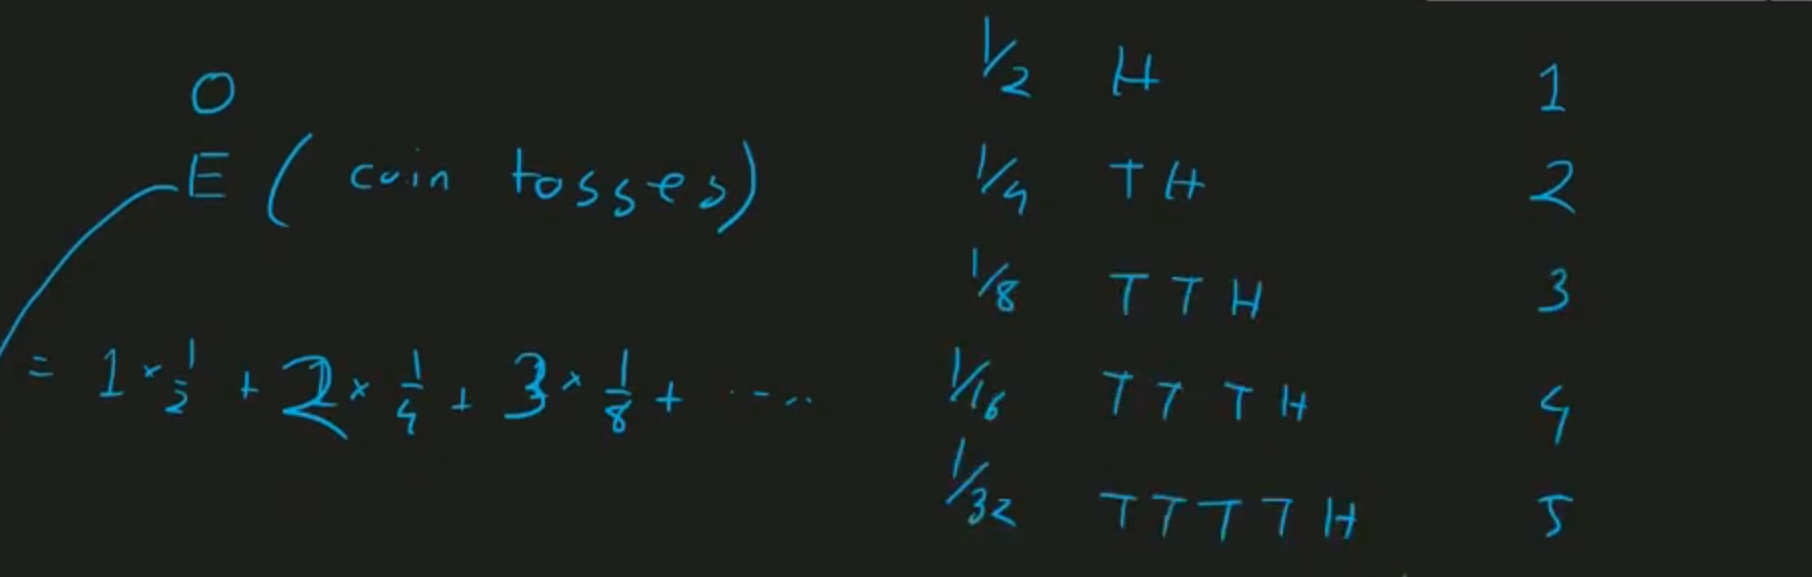 O
E ( coin tosses)
= 1 × 1/2 + 2 × 1/4 + 3 × 1/8 + ....
1/2 H 1
1/4 T H 2
1/8 T T H 3
1/16 T T T H 4
1/32 T T T T H 5